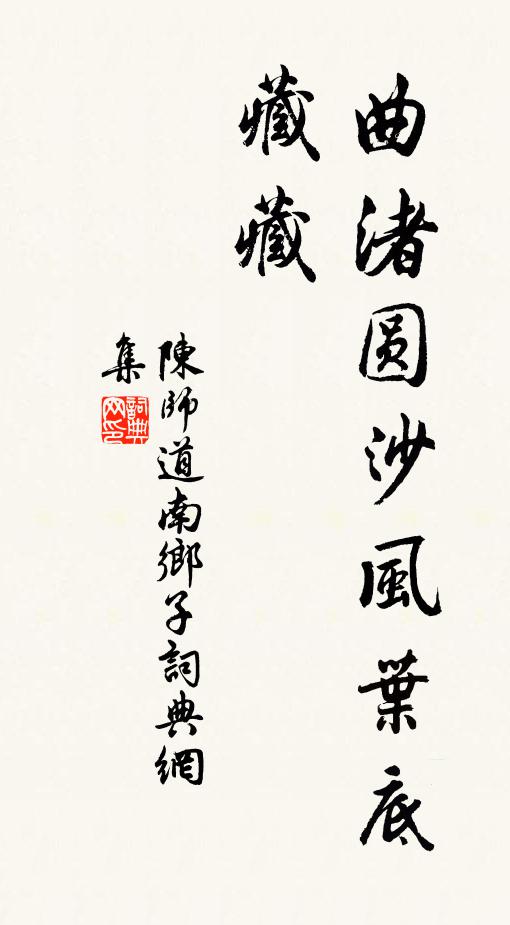 曲渚圓沙風葉底
藏藏
陳師道南鄉子詞典網
集
詞典
网印